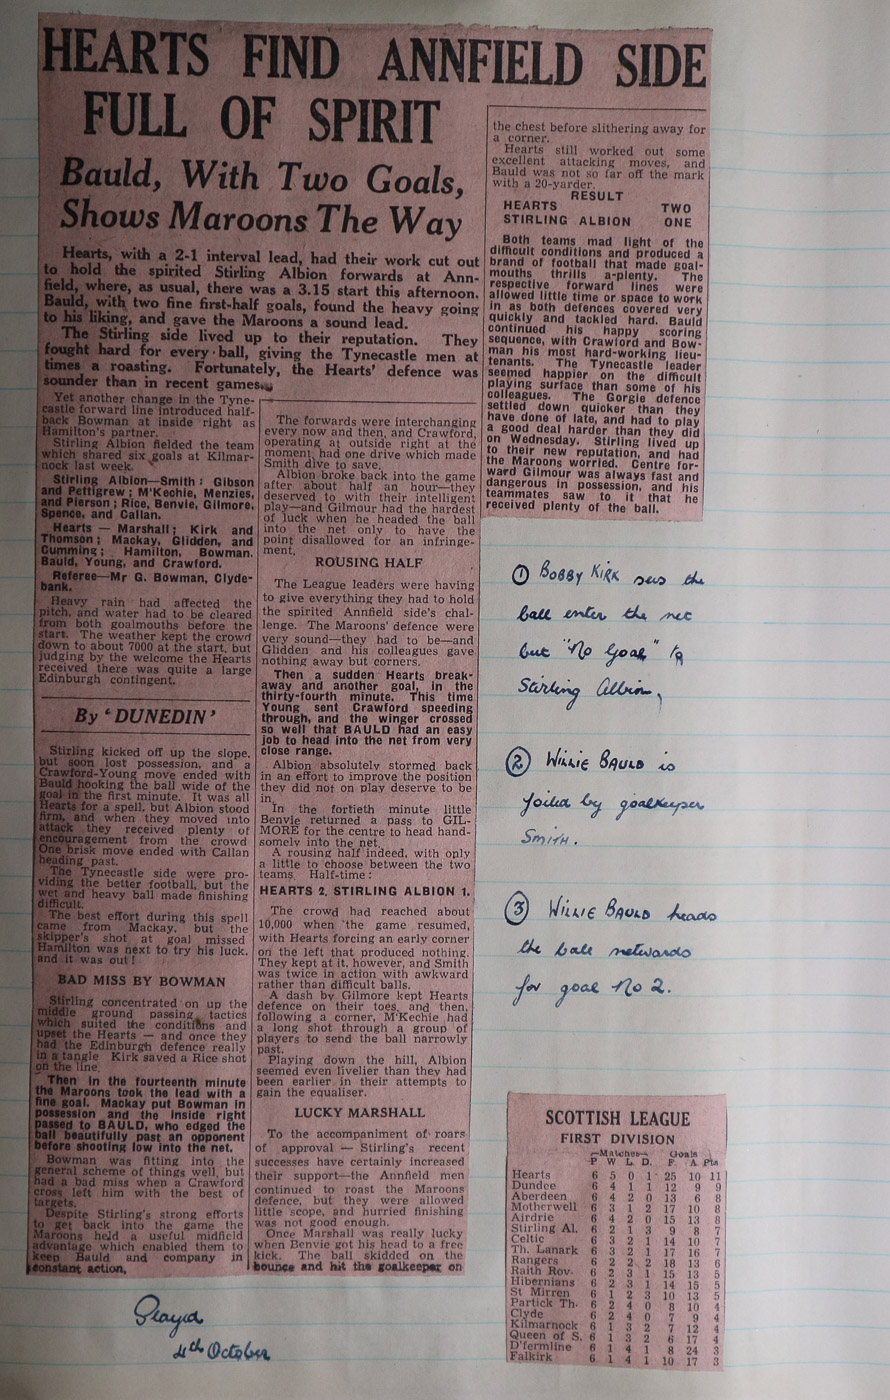 HEARTS FIND ANNFIELD SIDE
FULL OF SPIRIT
Bauld, With Two Goals,
Shows Maroons The Way
Hearts, with a 2-1 interval lead, had their work cut out
to hold the spirited Stirling Albion forwards at Ann-
field, where, as usual, there was a 3.15 start this afternoon.
Bauld, with two fine first-half goals, found the heavy going
to his liking, and gave the Maroons a sound lead.
The Stirling side lived up to their reputation. They
fought hard for every ball, giving the Tynecastle men at
times a roasting. Fortunately, the Hearts' defence was
sounder than in recent games.
Yet another change in the Tyne-
castle forward line introduced half-
back Bowman at inside right as
Hamilton's partner.
Stirling Albion fielded the team
which shared six goals at Kilmar-
nock last week.
Stirling Albion—Smith; Gibson
and Pettigrew; M'Kechie, Menzies,
and Pierson; Rice, Benvie, Gilmore,
Spence, and Callan.
Hearts — Marshall; Kirk and
Thomson; Mackay, Glidden, and
Cumming; Hamilton, Bowman,
Bauld, Young, and Crawford.
Referee—Mr G. Bowman, Clyde-
bank.
Heavy rain had affected the
pitch, and water had to be cleared
from both goalmouths before the
start. The weather kept the crowd
down to about 7000 at the start, but
judging by the welcome the Hearts
received there was quite a large
Edinburgh contingent.
By 'DUNEDIN'
Stirling kicked off up the slope,
but soon lost possession, and a
Crawford-Young move ended with
Bauld hooking the ball wide of the
goal in the first minute. It was all
Hearts for a spell, but Albion stood
firm, and when they moved into
attack they received plenty of
encouragement from the crowd
One brisk move ended with Callan
heading past.
The Tynecastle side were pro-
viding the better football, but the
wet and heavy ball made finishing
difficult.
The best effort during this spell
came from Mackay, but the
skipper's shot at goal missed
Hamilton was next to try his luck,
and it was out!
BAD MISS BY BOWMAN
Stirling concentrated on up the
middle ground passing tactics
which suited the conditions and
upset the Hearts — and once they
had the Edinburgh defence really
in a tangle Kirk saved a Rice shot
on the line.
Then in the fourteenth minute
the Maroons took the lead with a
fine goal. Mackay put Bowman in
possession and the inside right
passed to BAULD, who edged the
ball beautifully past an opponent
before shooting low into the net.
Bowman was fitting into the
general scheme of things well, but
had a bad miss when a Crawford
cross left him with the best of
targets.
Despite Stirling's strong efforts
to get back into the game the
Maroons held a useful midfield
advantage which enabled them to
keep Bauld and company in
constant action.
The forwards were interchanging
every now and then, and Crawford,
operating at outside right at the
moment, had one drive which made
Smith dive to save.
Albion broke back into the game
after about half an hour—they
deserved to with their intelligent
play—and Gilmour had the hardest
of luck when he headed the ball
into the net only to have the
point disallowed for an infringe-
ment.
ROUSING HALF
The League leaders were having
to give everything they had to hold
the spirited Annfield side's chal-
lenge. The Maroons' defence were
very sound—they had to be—and
Glidden and his colleagues gave
nothing away but corners.
Then a sudden Hearts break-
away and another goal, in the
thirty-fourth minute. This time
Young sent Crawford speeding
through, and the winger crossed
so well that BAULD had an easy
job to head into the net from very
close range.
Albion absolutely stormed back
in an effort to improve the position
they did not on play deserve to be
in.
In the fortieth minute little
Benvie returned a pass to GIL-
MORE for the centre to head hand-
somely into the net.
A rousing half indeed, with only
a little to choose between the two
teams. Half-time:
HEARTS 2, STIRLING ALBION 1.
The crowd had reached about
10,000 when the game resumed,
with Hearts forcing an early corner
on the left that produced nothing.
They kept at it, however, and Smith
was twice in action with awkward
rather than difficult balls.
A dash by Gilmore kept Hearts
defence on their toes, and then,
following a corner, M'Kechie had
a long shot through a group of
players to send the ball narrowly
past.
Playing down the hill, Albion
seemed even livelier than they had
been earlier in their attempts to
gain the equaliser.
LUCKY MARSHALL
To the accompaniment of roars
of approval — Stirling's recent
successes have certainly increased
their support—the Annfield men
continued to roast the Maroons
defence, but they were allowed
little scope, and hurried finishing
was not good enough.
Once Marshall was really lucky
when Benvie got his head to a free
kick. The ball skidded on the
bounce and hit the goalkeeper on
the chest before slithering away for
a corner.
Hearts still worked out some
excellent attacking moves, and
Bauld was not so far off the mark
with a 20-yarder.
RESULT
HEARTS TWO
STIRLING ALBION ONE
Both teams mad light of the
difficult conditions and produced a
brand of football that made goal-
mouths thrills a-plenty. The
respective forward lines were
allowed little time or space to work
in as both defences covered very
quickly and tackled hard. Bauld
continued his happy scoring
sequence, with Crawford and Bow-
man his most hard-working lieu-
tenants. The Tynecastle leader
seemed happier on the difficult
playing surface than some of his
colleagues. The Gorgie defence
settled down quicker than they
have done of late, and had to play
a good deal harder than they did
on Wednesday. Stirling lived up
to their new reputation, and had
the Maroons worried. Centre for-
ward Gilmour was always fast and
dangerous in possession, and his
teammates saw to it that he
received plenty of the ball.
① BOBBY KIRK sees the
ball enter the net
but "No Goal" for
Stirling Albion,
② WILLIE BAULD is
foiled by goalkeeper
SMITH.
③ WILLIE BAULD heads
the ball netwards
for goal No 2.
SCOTTISH LEAGUE
FIRST DIVISION
Matches Goals
P W L D. F A. Pts
Hearts 6 5 0 1 25 10 11
Dundee 6 4 1 1 12 9 9
Aberdeen 6 4 2 0 13 6 8
Motherwell 6 3 1 2 17 10 8
Airdrie 6 4 2 0 15 13 8
Stirling Al. 6 2 1 3 9 8 7
Celtic 6 3 2 1 14 10 7
Th. Lanark 6 3 2 1 17 16 7
Rangers 6 2 2 2 18 13 6
Raith Rov. 6 2 3 1 15 13 5
Hibernians 6 2 3 1 14 15 5
St Mirren 6 1 2 3 10 13 5
Partick Th. 6 2 4 0 8 10 4
Clyde 6 2 4 0 7 9 4
Kilmarnock 6 1 3 2 7 12 4
Queen of S. 6 1 3 2 6 17 4
D'fermline 6 1 4 1 8 24 3
Falkirk 6 1 4 1 10 17 3
Played
4th October